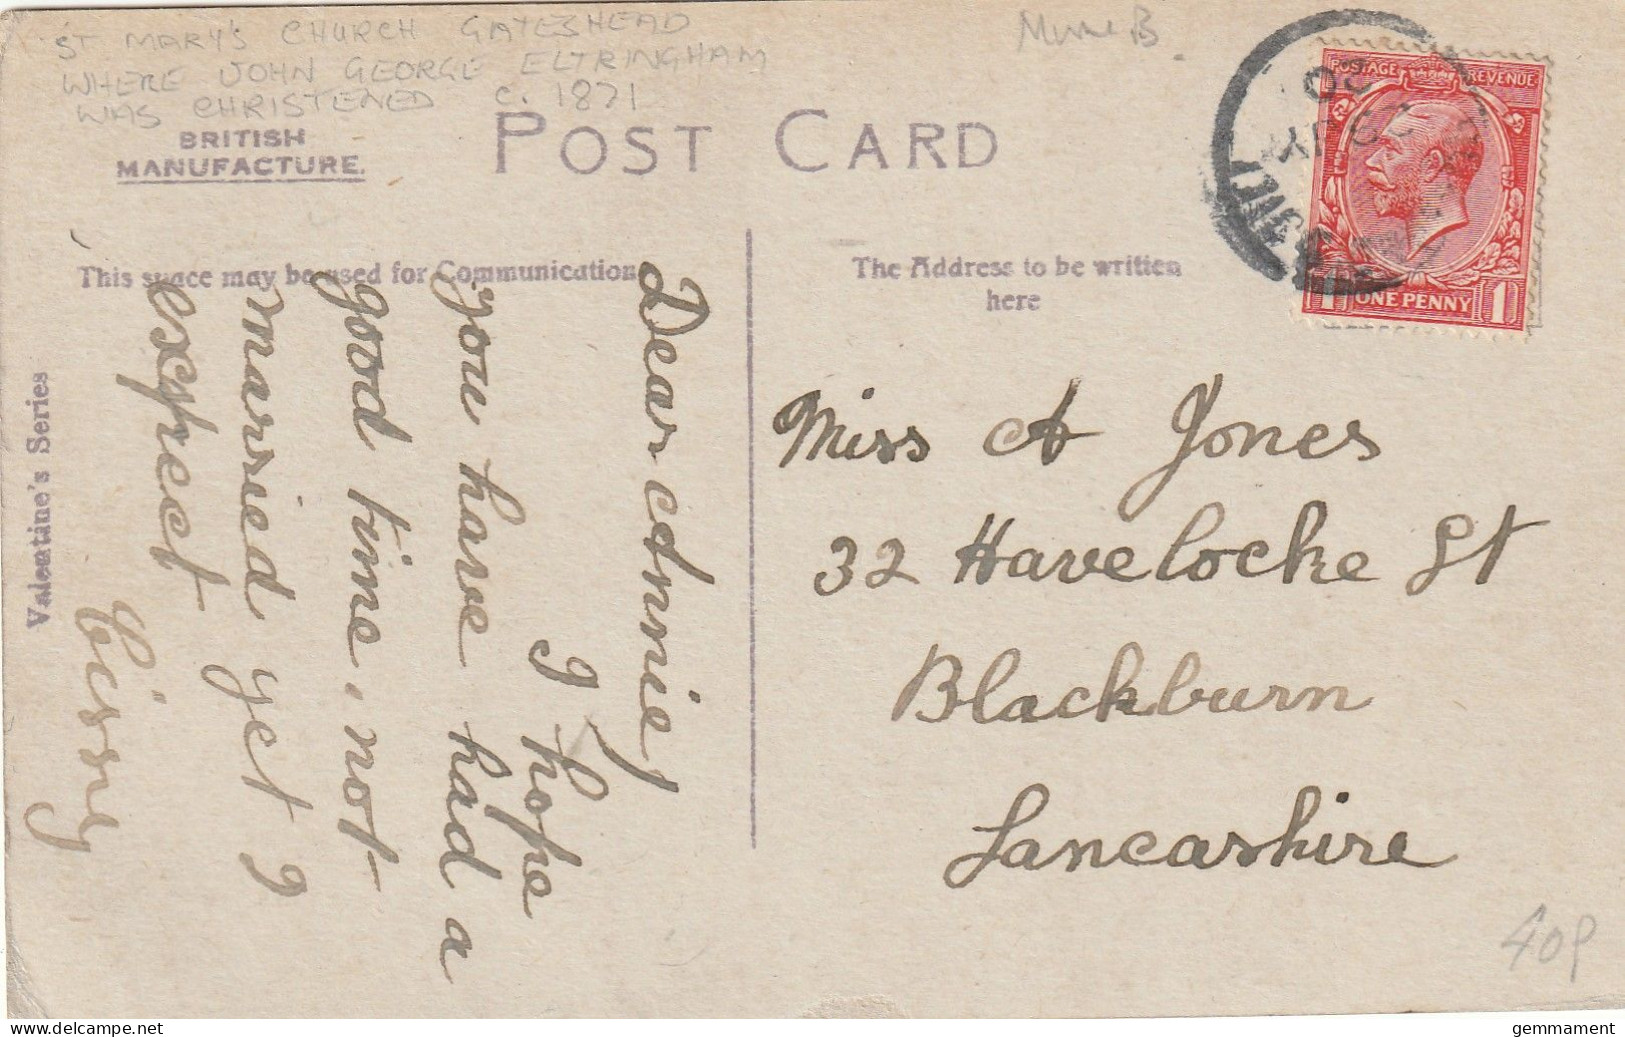 ST MARY'S CHURCH GATESHEAD
WHERE JOHN GEORGE ELTRINGHAM
WAS CHRISTENED c. 1871
BRITISH
MANUFACTURE.
POST CARD
POSTAGE REVENUE
1 ONE PENNY 1
This space may be used for Communication
The Address to be written
here
Valentine's Series
Dear Annie,
I hope
you have had a
good time, not
married yet I
expect
Cissy
Miss A Jones
32 Havelocke St
Blackburn
Lancashire
40p
gemmament